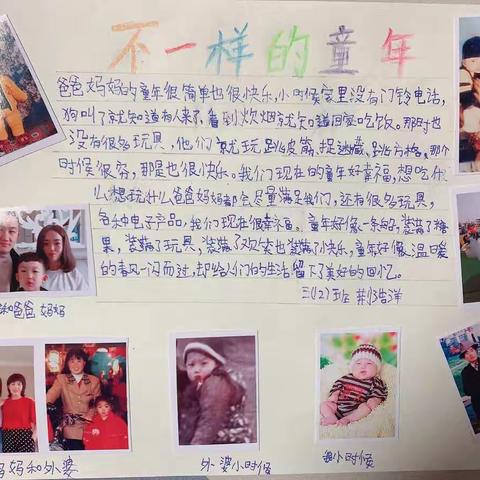 不一样的童年
爸爸妈妈的童年很简单也很快乐,小时候家里没有门铃电话,
狗叫了就知道有人来了,看到炊烟就知道回家吃饭。那时也
没有很多玩具,他们就玩跳皮筋、捉迷藏、跳方格。那个
时候很穷,那是也很快乐。我们现在的童年好幸福,想吃什
么想玩什么爸爸妈妈都会尽量满足我们,还有很多玩具,
各种电子产品,我们现在很幸福。童年好像一条船,装满了糖
果,装满了玩具,装满了欢笑也装满了快乐,童年好像温暖
的春风一闪而过,却给人们的生活留下了美好的回忆。
三(12)班 荆浩洋
和爸爸妈妈
妈和外婆
外婆小时候
小时候